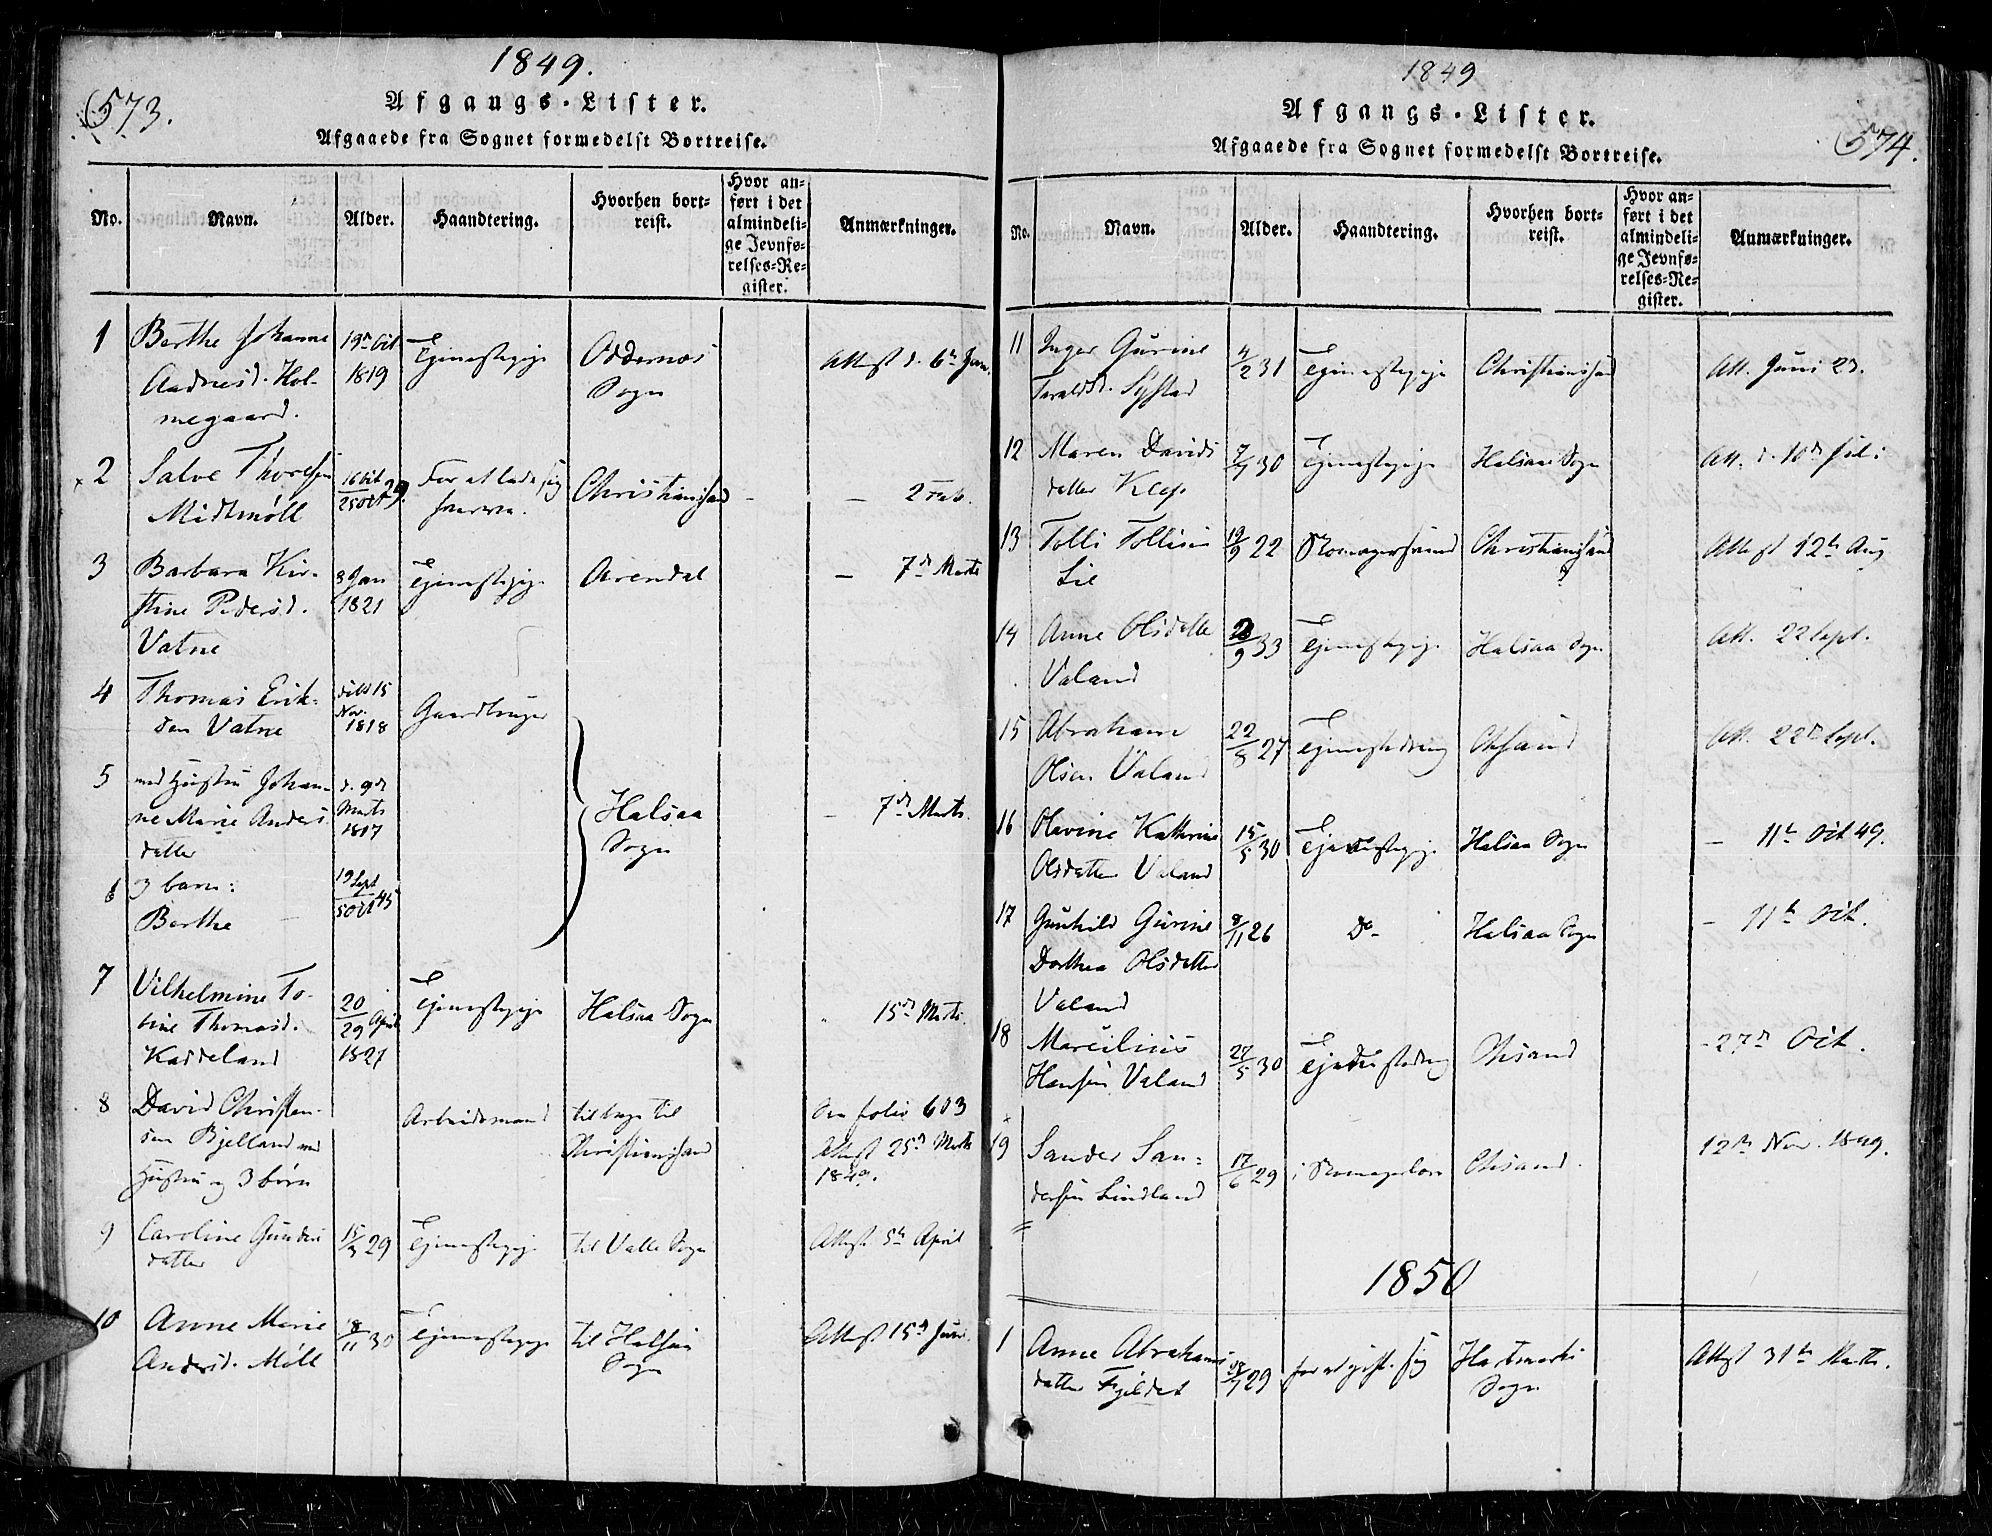 1849.
573.
Afgangs-Lister.
Afgaaede fra Sognet formedelst Bortreise.
No. Navn. Alder. Haandtering. Hvorhen bortreist. Hvor anført i det almindelige Jevnførelses-Register. Anmærkninger.
1 Berthe Johanne 19de Oct Tjenestepige Oddernes Attest d. 6te Jan.
Aadnesd. Hol- 1819 Sogn
megaard.
2 Salve Thoresen 16 Oct For at lade sig Christiansand — 2 Feb.
Midtmöll 25 Oct 29.
3 Barbara Kir- 3 Jan Tjenestepige Arendal — 7de Marts
stine Pedersd. 1821
Vatne
4 Thomas Erik- 15 Gaardbruger
sen Vatne Nov. 1818
5 med Hustru Johan- d. 9de Halsaa — 7de Marts.
ne Marie Anders Marts Sogn
datter 1817
6 og barn: 19 Sept
Berthe 5 Oct 45
7 Vilhelmine To- 20 Tjenestepige Halsaa Sogn 15de Marts.
bine Thomasd. 29 April
Kaddeland 1827
8 David Christen- Arbeidsmand tilbage til See folio 603
sen Bjelland med Christiansand Attest 25de Marts
Hustru og 3 börn 1849.
9 Caroline Gunders 15/3 29 Tjenestepige til Valle Sogn Attest 5te April
datter
10 Anne Marie 8/11 30 Tjenestepige til Halsaa Attest 15de Juni.
Andersd. Möll Sogn
1849
574.
Afgangs-Lister.
Afgaaede fra Sognet formedelst Bortreise.
No. Navn. Alder. Haandtering. Hvorhen bortreist. Hvor anført i det almindelige Jevnførelses-Register. Anmærkninger.
11 Inger Gurine 4/2 31 Tjenestepige Christiansand Att. Juni 23.
Taraldsd.
12 Maren Davids 7/7 30 Tjenestepige Halsaa Sogn Att. d. 10de Juli
datter Klep.
13 Tolli Tollisen 19/9 22 Christiansand Attest 12te Aug
Lie
14 Anne Olsdatte 9 33 Tjenestepige Halsaa Sogn Att. 22 Sept.
Valand
15 Abraham 22/8 27 Tjenestedreng Chsand Att. 22de Sept.
Olsen Valand
16 Olavine Kathrine 15/5 30 Tjenestepige Halsaa Sogn — 11te Oct 49.
Olsdatter Valand
17 Gunhild Gurine 8/11 26 Do- Halsaa Sogn — 11te Oct.
Dorthea Olsdatter
Valand
18 Marcilius 27/5 30 Tjenestedreng Chsand - 27de Oct.
Hansen Valand
19 Sander San- 17/6 29 i Skomagerlære Chsand. 12te Nov. 1849.
dersen Lindland
1850
1 Anne Abrahams 29 for at gifte sig Hartmarks Attest 31te Marts.
datter Fjeldet Sogn